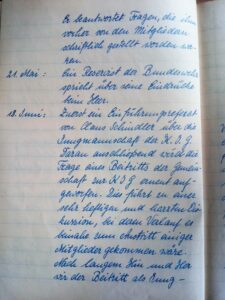 Er beantwortet Fragen, die ihm
vorher von den Mitgliedern
schriftlich gestellt worden wa-
ren.
21. Mai: Ein Reservist der Bundeswehr
spricht über seine Eindrücke
beim Heer.
18. Juni: Zuerst ein Einführungsreferat
von Claus Schindler über die
Jungmannschaft der K.S.G.
Daran anschließend wird die
Frage eines Beitritts der Gemein-
schaft zur KSG erneut auf-
geworfen. Dies führt zu einer
sehr heftigen und harten Dis-
kussion, bei dem Verlauf es
beinahe zum Austritt einiger
Mitglieder gekommen wäre.
Nach langem Hin und Her
wir der Beitritt als Jung-